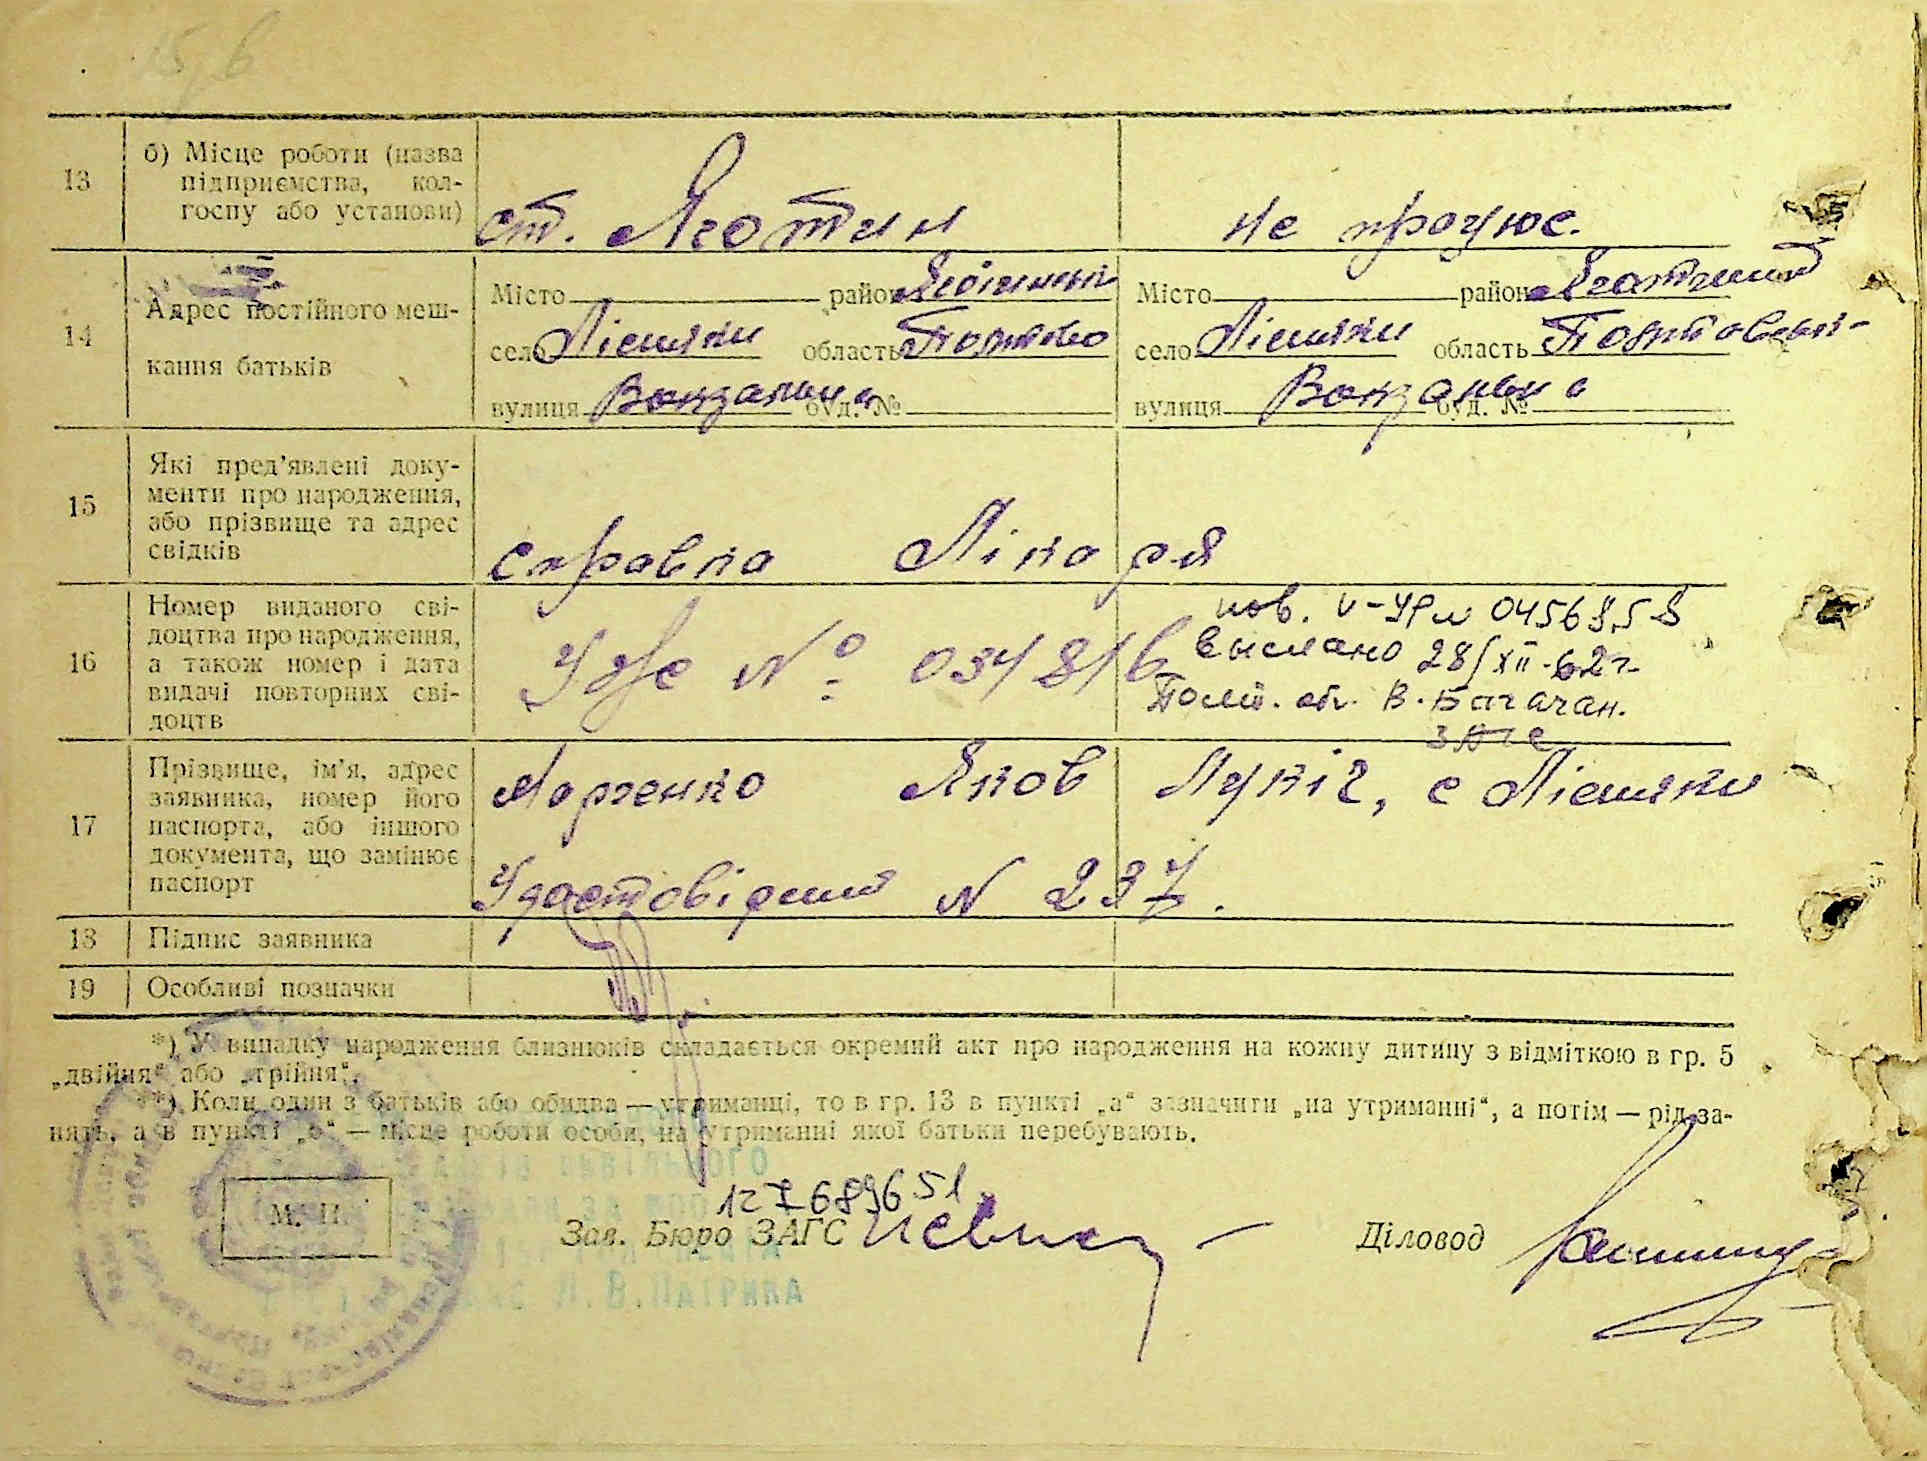 13
б) Місце роботи (назва
підприємства, кол-
госпу або установи)
ст. Яготин
не процює.
14
Адрес постійного меш-
кання батьків
Місто район
село Лісняки область
вулиця буд. №
Місто район
село Лісняки область
вулиця буд. №
15
Які пред'явлені доку-
менти про народження,
або прізвище та адрес
свідків
справка Лікаря
16
Номер виданого сві-
доцтва про народження,
а також номер і дата
видачі повторних сві-
доцтв
№ 034816
пов. V-УР № 0456858
выслано 28/XII-62 г.
обл. В. Багачан.
загс
17
Прізвище, ім'я, адрес
заявника, номер його
паспорта, або іншого
документа, що замінює
паспорт
Марченко Яков Лукіч, с Лісняки
N 237.
18
Підпис заявника
19
Особливі позначки
*) У випадку народження близнюків складається окремий акт про народження на кожну дитину з відміткою в гр. 5
„двійня“ або „трійня“.
**) Коли один з батьків або обидва — утриманці, то в гр. 13 в пункті „а“ зазначити „на утриманні“, а потім — рід за-
нять, а в пункті „б“ — місце роботи особи, на утриманні якої батьки перебувають.
М. П.
127689651
Зав. Бюро ЗАГС
Діловод
Л. В. ПАТРИКА